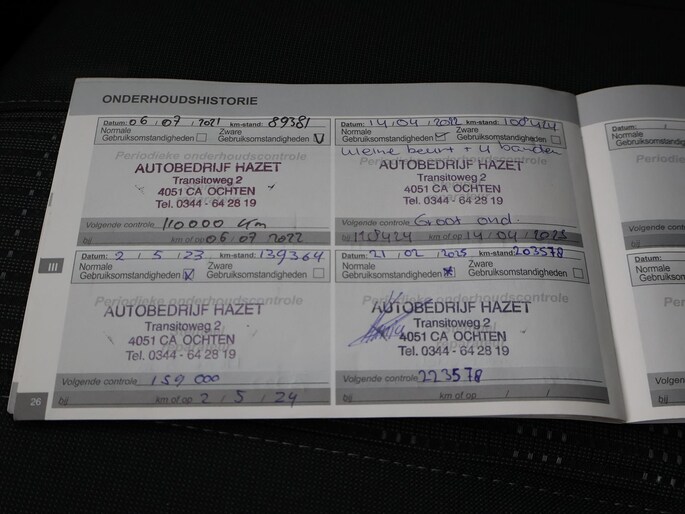 ONDERHOUDSHISTORIE
Datum: 06 / 07 / 2021 km-stand: 89381
Normale Gebruiksomstandigheden
Zware Gebruiksomstandigheden V
Periodieke onderhoudscontrole
AUTOBEDRIJF HAZET
Transitoweg 2
4051 CA OCHTEN
Tel. 0344 - 64 28 19
Volgende controle 110000 km
bij km of op 06 / 07 / 2022
Datum: 14 / 04 / 2022 km-stand: 108424
Normale Gebruiksomstandigheden
Zware Gebruiksomstandigheden
kleine beurt + 4 banden
AUTOBEDRIJF HAZET
Transitoweg 2
4051 CA OCHTEN
Tel. 0344 - 64 28 19
Volgende controle Groot ond.
bij 118424 km of op 14 / 04 / 2023
III
Datum: 2 / 5 / 23 km-stand: 139364
Normale Gebruiksomstandigheden X
Zware Gebruiksomstandigheden
Periodieke onderhoudscontrole
AUTOBEDRIJF HAZET
Transitoweg 2
4051 CA OCHTEN
Tel. 0344 - 64 28 19
Volgende controle 159 000
bij km of op 2 / 5 / 24
Datum: 21 / 02 / 2025 km-stand: 203578
Normale Gebruiksomstandigheden X
Zware Gebruiksomstandigheden
Periodieke onderhoudscontrole
AUTOBEDRIJF HAZET
Transitoweg 2
4051 CA OCHTEN
Tel. 0344 - 64 28 19
Volgende controle 223578
bij km of op / /
26
Datum: /
Normale
Gebruiksom
Periodi
Volgende
bij
Datum:
Normale
Gebruiksom
Period
Volgen
bij